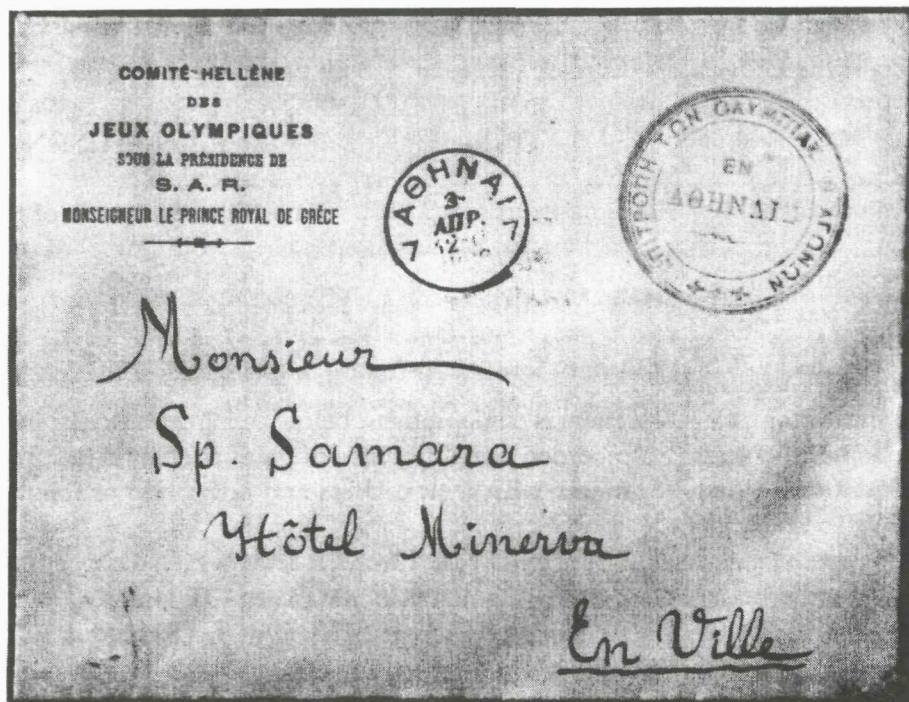 COMITÉ-HELLÈNE
DES
JEUX OLYMPIQUES
SOUS LA PRÉSIDENCE DE
S. A. R.
MONSEIGNEUR LE PRINCE ROYAL DE GRÈCE
7 ΑΘΗΝΑΙ 7
3-
ΑΠΡ.
ΕΠΙΤΡΟΠΗ ΤΩΝ ΟΛΥΜΠΙΑΚ ΑΓΩΝΩΝ
ΕΝ
ΑΘΗΝΑΙΣ
Monsieur
Sp. Samara
Hôtel Minerva
En Ville